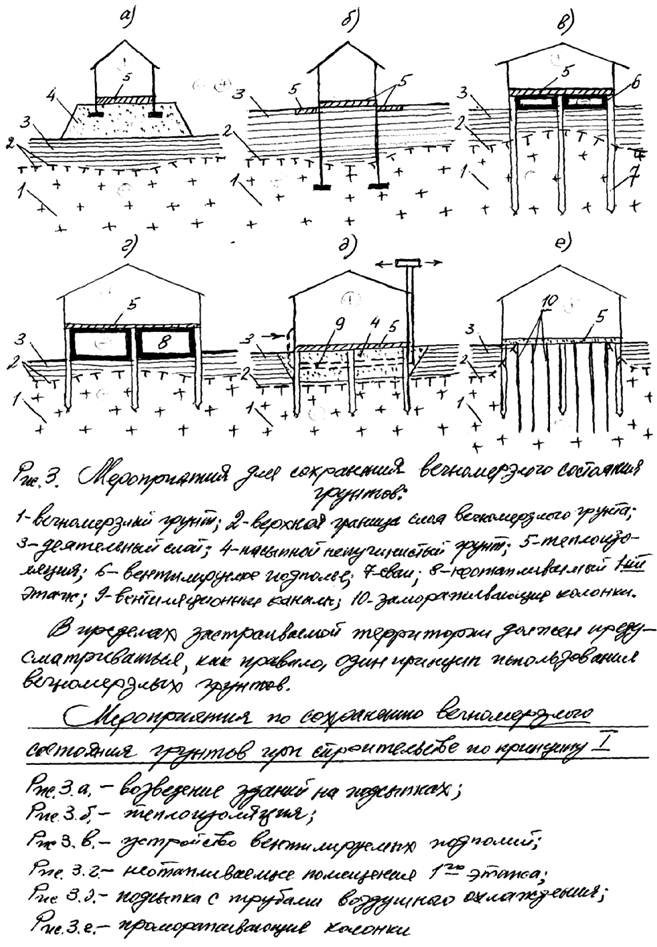 а) б) в)
5 5 5 5 6
4 3 3
3 2 2
2 1 1 7
1
г) д) е)
5 8 9 4 5 10 5
3 3 3
2 2 2
1 1 1
Рис. 3. Мероприятия для сохранения вечномерзлого состояния
грунтов:
1-вечномерзлый грунт; 2-верхняя граница слоя вечномерзлого грунта;
3-деятельный слой; 4-насыпной непучинистый грунт; 5-теплоизо-
ляция; 6-вентилируемое подполье; 7-сваи; 8-неотапливаемый 1ый
этаж; 9-вентиляционные каналы; 10-замораживающие колонки.
В пределах застраиваемой территории должен преду-
сматриваться, как правило, один принцип использования
вечномерзлых грунтов.
Мероприятия по сохранению вечномерзлого
состояния грунтов при строительстве по принципу I
Рис. 3.а.- возведение зданий на подсыпках;
Рис. 3.б.- теплоизоляция;
Рис 3.в.- устройство вентилируемых подполий;
Рис. 3.г.- неотапливаемые помещения 1го этажа;
Рис 3.д.- подсыпка с трубами воздушного охлаждения;
Рис. 3.е.- промораживающие колонки